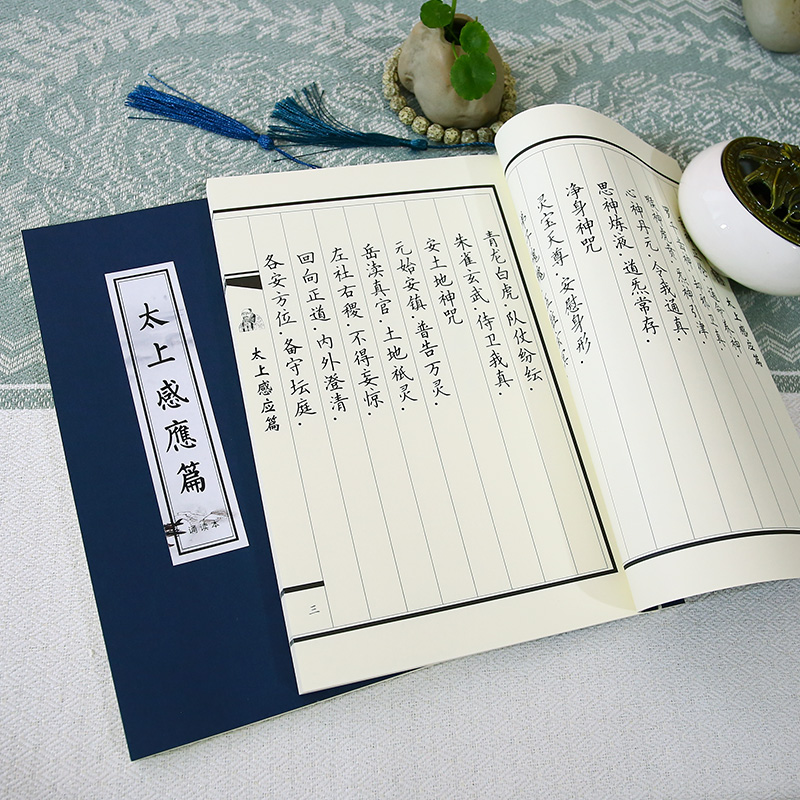 太上感應篇
诵读本
太上感应篇
炁神引津
心神丹元·令我通真·
思神炼液·道炁常存·
净身神咒
灵宝天尊·安慰身形·
青龙白虎·队仗纷纭·
朱雀玄武·侍卫我真·
安土地神咒
元始安镇·普告万灵·
岳渎真官·土地祇灵·
左社右稷·不得妄惊·
回向正道·内外澄清·
各安方位·备守坛庭·
太上感应篇
三